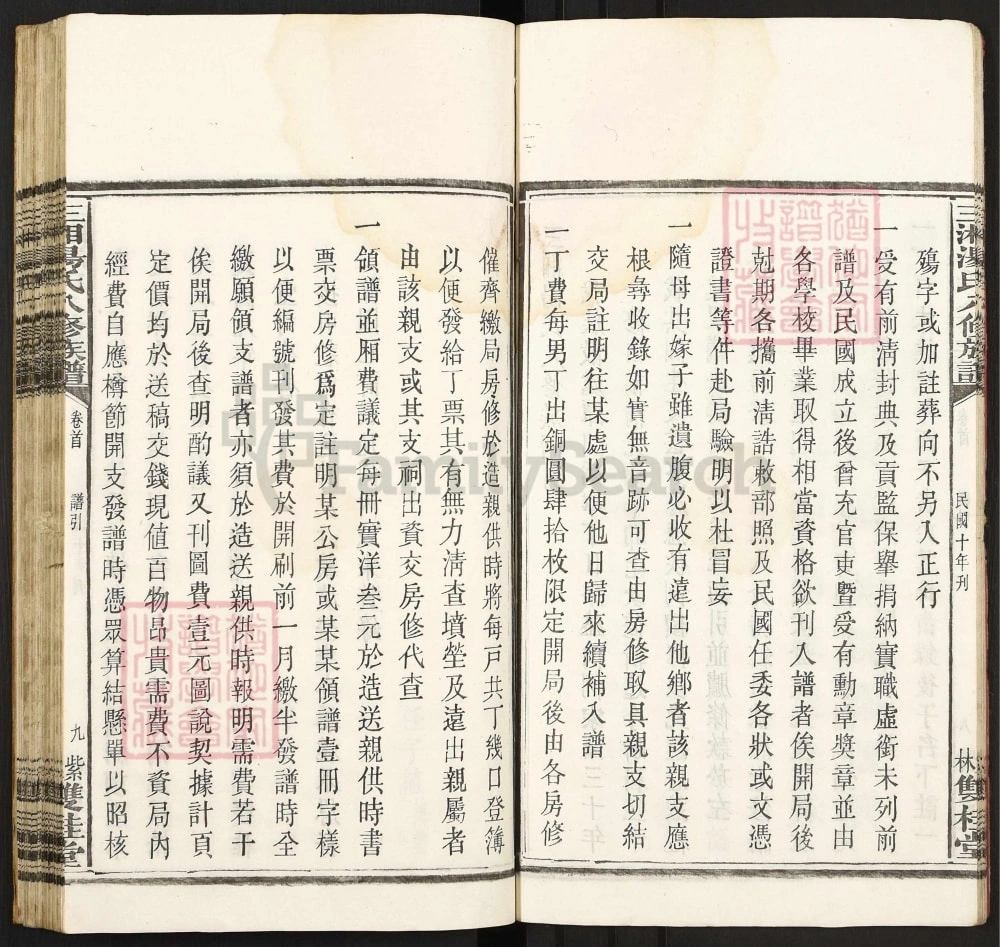 三湘湯氏八修族譜
民國十年刊
林雙桂堂
殤字或加註葬向不另入正行
一受有前淸封典及貢監保舉捐納實職虛銜未列前
譜及民國成立後曾充官吏暨受有勳章奬章並由
各學校畢業取得相當資格欲刊入譜者俟開局後
尅期各攜前淸誥敕部照及民國任委各狀或文憑
證書等件赴局驗明以杜冒妄
一隨母出嫁子雖遺腹必收有遠出他鄉者該親支應
根尋收錄如實無音跡可查由房修取具親支切結
交局註明往某處以便他日歸來續補入譜
一丁費每男丁出銅圓肆拾枚限定開局後由各房修
催齊繳局房修於造親供時將每戶共丁幾口登簿
以便發給丁票其有無力淸查墳塋及遠出親屬者
由該親支或其支祠出資交房修代查
一領譜並厢費議定每冊實洋叁元於造送親供時書
票交房修爲定註明某公房或某某領譜壹冊字樣
以便編號刊發其費於開刷前一月繳半發譜時全
繳願領支譜者亦須於造送親供時報明需費若干
俟開局後查明酌議又刊圖費壹元圖說契據計頁
定價均於送稿交錢現值百物昂貴需費不資局內
經費自應樽節開支發譜時憑眾算結懸單以昭核
三湘湯氏八修族譜
卷首
譜引
九
紫雙桂堂
FamilySearch